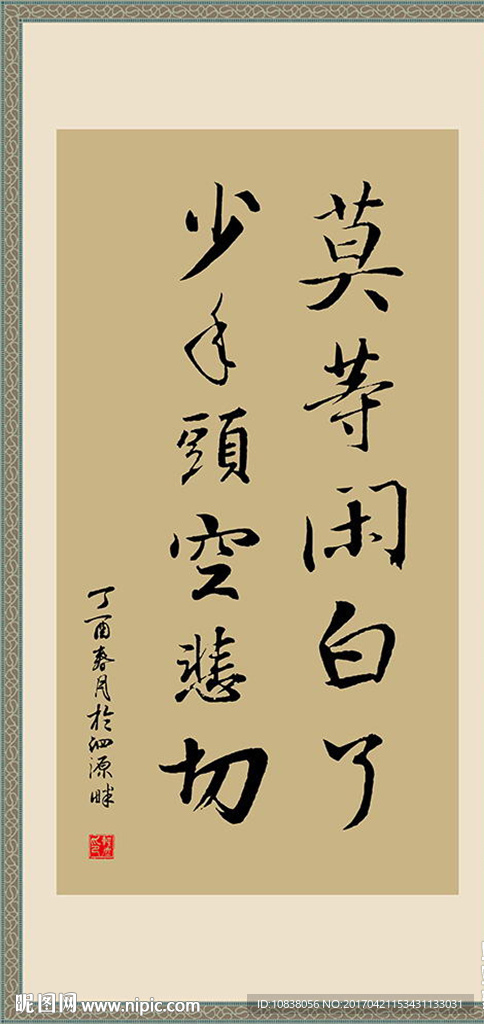 莫等闲白了
少年頭空悲切
丁酉春月於泗源畔
昵图网 www.nipic.com
ID:10838056 NO:20170421153431133031